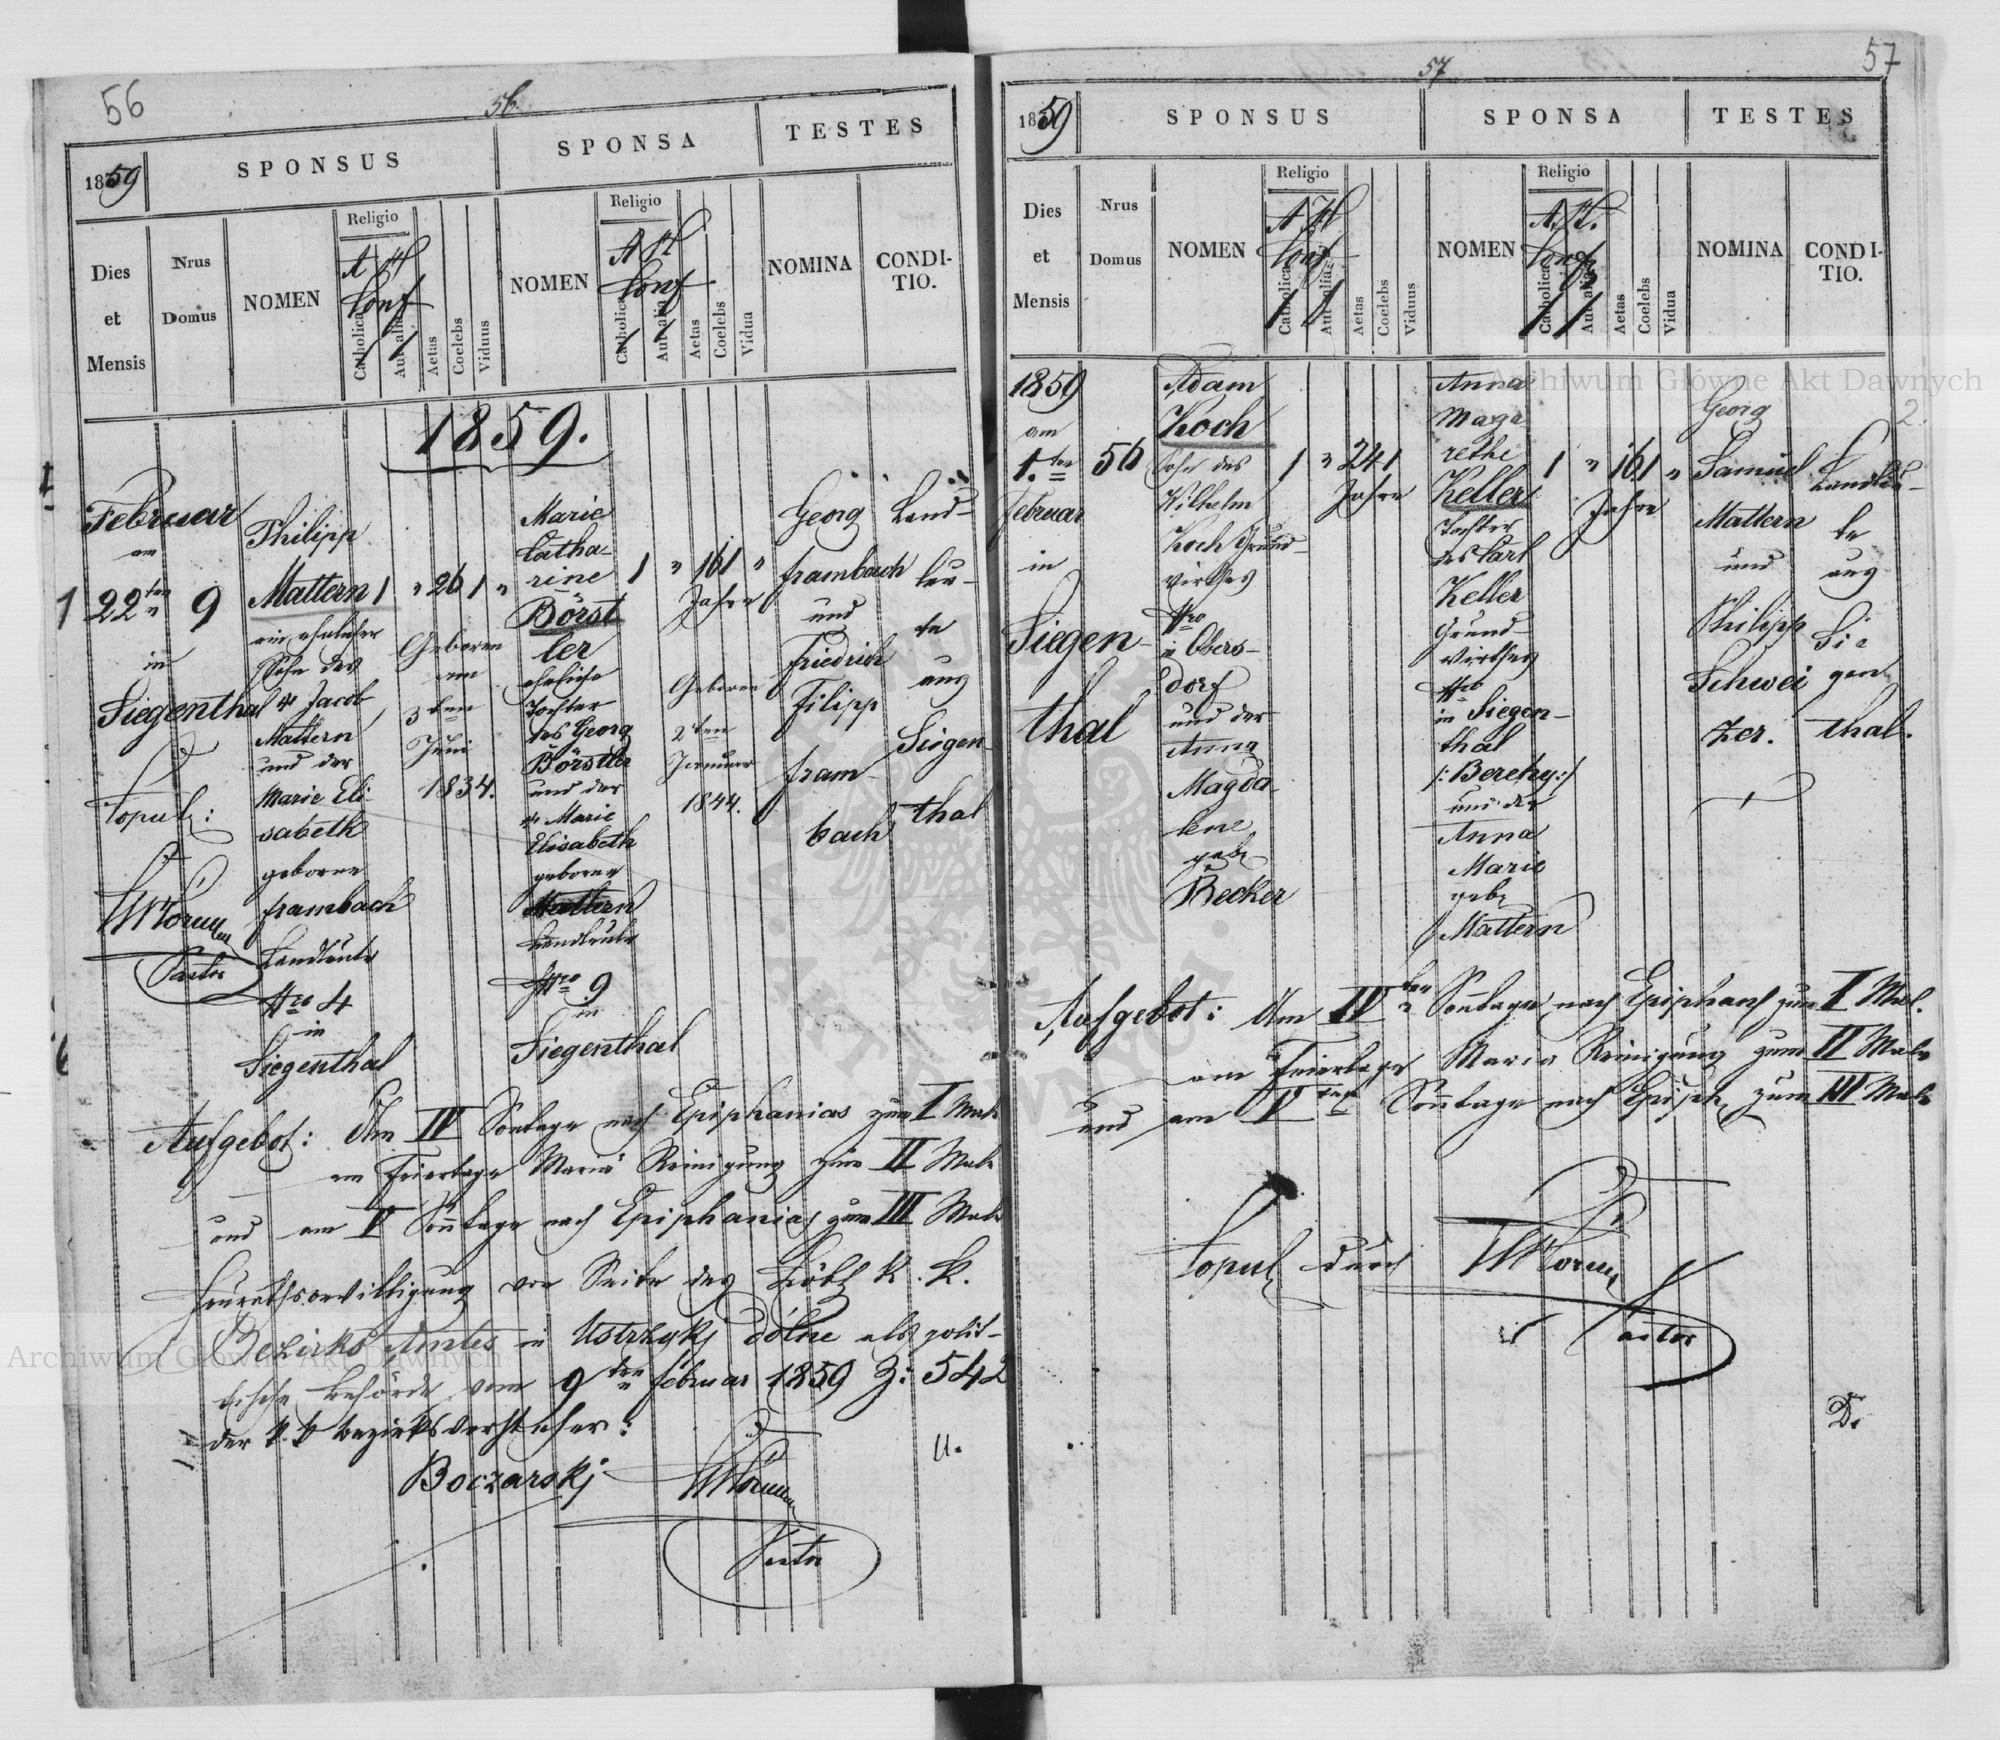 56
56.
1859
SPONSUS
SPONSA
TESTES
Dies et Mensis
Nrus Domus
NOMEN
Religio
A H Conf
Catholica
Aut alia
Aetas
Coelebs
Viduus
NOMEN
Religio
A H Conf
Catholica
Aut alia
Aetas
Coelebs
Vidua
NOMINA
CONDI-
TIO.
1859.
Februar
am
1 22ten 9
in
Siegenthal
Copul:
Pastor
Philipp
Mattern 1 " 26 1 "
ein ehelicher
Sohn des
Jacob
Mattern
und der
Marie Eli-
sabeth
geborne
Frambach
Landleute
Nro 4
in
Siegenthal
Geboren
am
3ten
Juni
1834.
Marie
Catha-
rine 1 " 16 1 "
Börst
ler
eheliche
Tochter
des Georg
Börstler
und der
Marie
Elisabeth
geborne
Mattern
Landleute
Nro 9
in
Siegenthal
Jahre
Geboren
2ten
Januar
1844.
Georg
Frambach
und
Friedrich
Filipp
Fram-
bach
Land-
leu-
te
aus
Siegen-
thal
Aufgebot: Am IV Sontage nach Epiphanias zum I Male
am Feiertage Mariä Reinigung zum II Male
und am V Sonntage nach Epiphanias zum III Male
Heurathsbewilligung von Seite des Löbl. K. K.
Bezirks Amtes in Ustrzyki dolne als polit-
ische Behörde vom 9ten Februar 1859 Z: 542
der k. k Bezirksvorsteher:
Boczarski
Pastor
U.
57
57
1859
SPONSUS
SPONSA
TESTES
Dies et Mensis
Nrus Domus
NOMEN
Religio
A H Conf
Catholica
Aut alia
Aetas
Coelebs
Viduus
NOMEN
Religio
A. H. Conf
Catholica
Aut alia
Aetas
Coelebs
Vidua
NOMINA
CONDI-
TIO.
1859
am
1.ten 56
Februar
in
Siegen-
thal
Adam
Koch
Sohn des 1 " 24 1
Wilhelm
Koch Grund-
wirthes
Nro
in Obers-
dorf
und der
Anna
Magda-
lene
geb
Becker
Jahre
Anna
Maga
rethe 1 " 16 1 "
Keller
Tochter
des Carl
Keller
Grund-
wirthes
Nro
in Siegen-
thal
/: Berehy:/
und der
Anna
Marie
geb
Mattern
Jahre
Georg
Samuel
Mattern
und
Philipp
Schwei
zer.
2.
Landleu-
te
aus
Sie
gen
thal.
Aufgebot: Am IVten Sonntage nach Epiphan zum I Mal.
am Feiertage Maria Reinigung zum II Male
und am Vten Sonntage nach Epiph zum III Male
Copul durch
Pastor
D.
Archiwum Główne Akt Dawnych
Archiwum Główne Akt Dawnych